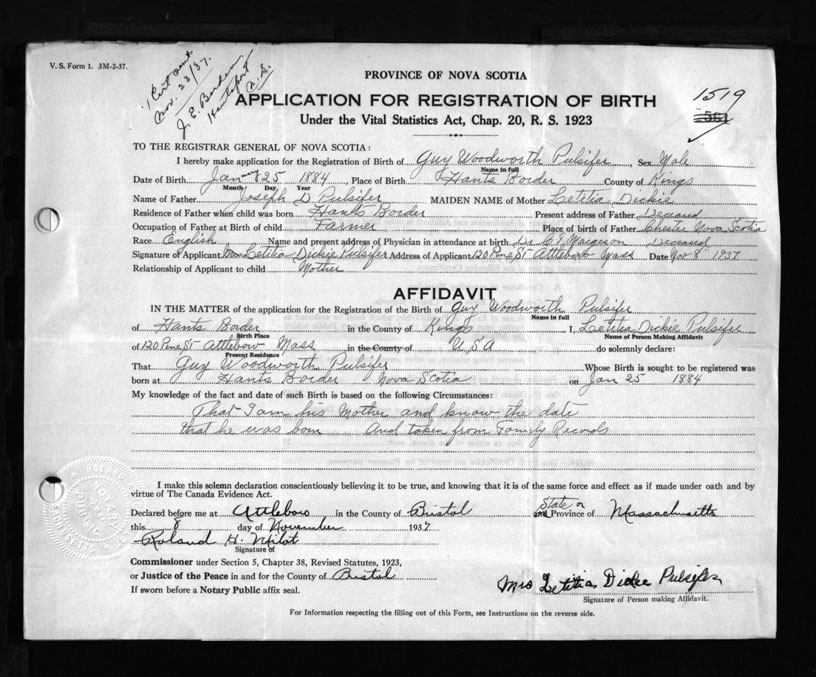 V. S. Form 1. 3M-2-37.
1 Cert sent
Nov. 23/37.
J. E. Borden
Hantsport
N. S.
PROVINCE OF NOVA SCOTIA
1519
561
APPLICATION FOR REGISTRATION OF BIRTH
Under the Vital Statistics Act, Chap. 20, R. S. 1923
TO THE REGISTRAR GENERAL OF NOVA SCOTIA:
I hereby make application for the Registration of Birth of Guy Woodworth Pulsifer, Sex Male
Name in full
Date of Birth January 25 1884, Place of Birth Hants Border County of Kings
Month Day Year
Name of Father Joseph D Pulsifer MAIDEN NAME of Mother Letitia Dickie
Residence of Father when child was born Hants Border Present address of Father Deceased
Occupation of Father at Birth of Child Farmer Place of birth of Father Chester Nova Scotia
Race English Name and present address of Physician in attendance at birth Dr Margeson Deceased
Signature of Applicant Mrs Letitia Dickie Pulsifer Address of Applicant 120 Pine St Attleboro Mass Date Nov 8 1937
Relationship of Applicant to child Mother
AFFIDAVIT
IN THE MATTER of the application for the Registration of the Birth of Guy Woodworth Pulsifer
Name in full
of Hants Border in the County of Kings I, Letitia Dickie Pulsifer
Birth Place Name of Person Making Affidavit
of 120 Pine St Attleboro Mass in the County of U S A do solemnly declare:
Present Residence
That Guy Woodworth Pulsifer Whose Birth is sought to be registered was
born at Hants Border Nova Scotia on Jan 25 1884
My knowledge of the fact and date of such Birth is based on the following Circumstances:
That I am his Mother and know the date
that he was born And taken from Family Records
I make this solemn declaration conscientiously believing it to be true, and knowing that it is of the same force and effect as if made under oath and by
virtue of The Canada Evidence Act.
Declared before me at Attleboro in the County of Bristol State or and Province of Massachusetts
this 8 day of November 1937
Roland H. Milot
Signature of
Commissioner under Section 5, Chapter 38, Revised Statutes, 1923,
or Justice of the Peace in and for the County of Bristol
If sworn before a Notary Public affix seal.
Mrs Letitia Dickie Pulsifer
Signature of Person making Affidavit.
For Information respecting the filling out of this Form, see Instructions on the reverse side.